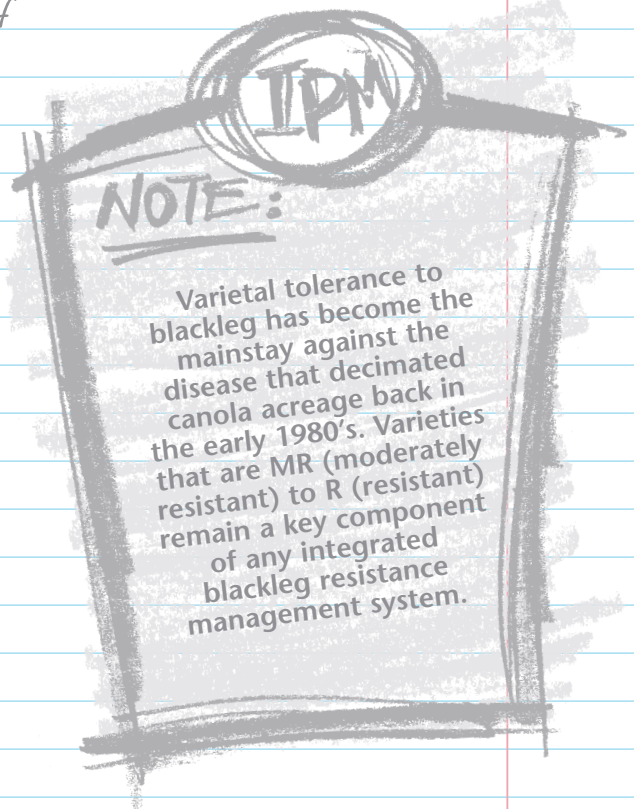 IPM
NOTE:
Varietal tolerance to
blackleg has become the
mainstay against the
disease that decimated
canola acreage back in
the early 1980's. Varieties
that are MR (moderately
resistant) to R (resistant)
remain a key component
of any integrated
blackleg resistance
management system.